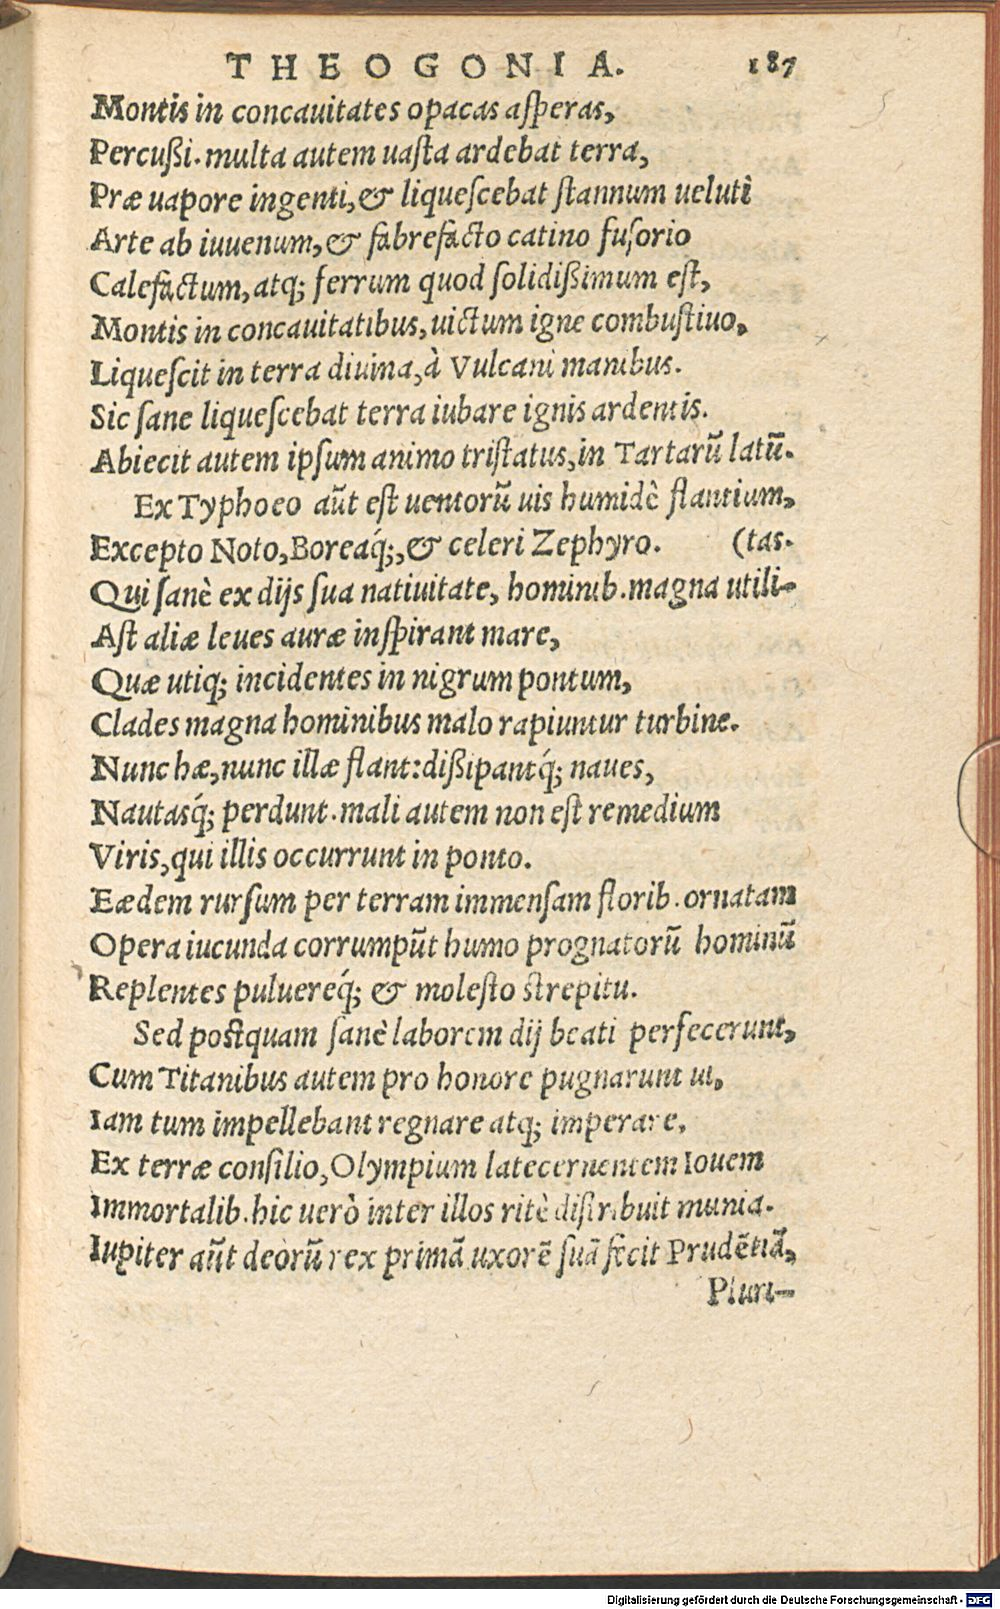 THEOGONIA. 187
Montis in concauitates opacas aſperas,
Percußi. multa autem uaſta ardebat terra,
Præ uapore ingenti, & liqueſcebat ſtannum uelutì
Arte ab iuuenum, & fabrefacto catino fuſorio
Calefactum, atq; ferrum quod ſolidißimum eſt,
Montis in concauitatibus, uictum igne combuſtiuo,
Liqueſcit in terra diuina, à Vulcani manibus.
Sic ſane liqueſcebat terra iubare ignis ardentis.
Abiecit autem ipſum animo triſtatus, in Tartarū latū.
Ex Typhoeo aūt eſt uentorū uis humidè flantium,
Excepto Noto, Boreaq́;, & celeri Zephyro. (tas.
Qui ſanè ex dijs ſua natiuitate, hominib. magna utili-
Aſt aliæ leues auræ inſpirant mare,
Quæ utiq; incidentes in nigrum pontum,
Clades magna hominibus malo rapiuntur turbine.
Nunc hæ, nunc illæ flant: dißipantq́; naues,
Nautasq́; perdunt. mali autem non eſt remedium
Viris, qui illis occurrunt in ponto.
Eædem rurſum per terram immenſam florib. ornatam
Opera iucunda corrumpūt humo prognatorū hominū
Replentes puluereq́; & moleſto ſtrepitu.
Sed poſtquam ſanè laborem dij beati perfecerunt,
Cum Titanibus autem pro honore pugnarunt ui,
Iam tum impellebant regnare atq; imperare,
Ex terræ conſilio, Olympium latecernentem Iouem
Immortalib. hic uerò inter illos ritè diſtribuit munia.
Iupiter aūt deorū rex primā uxorē ſuā fecit Prudētiā,
Pluri-
Digitalisierung gefördert durch die Deutsche Forschungsgemeinschaft - DFG